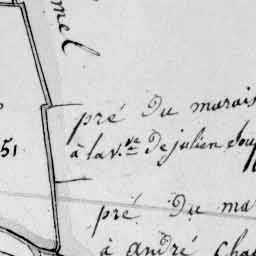 mel
pré Du marais
51
à la v.ve De julien
pré Du ma
à andré cha